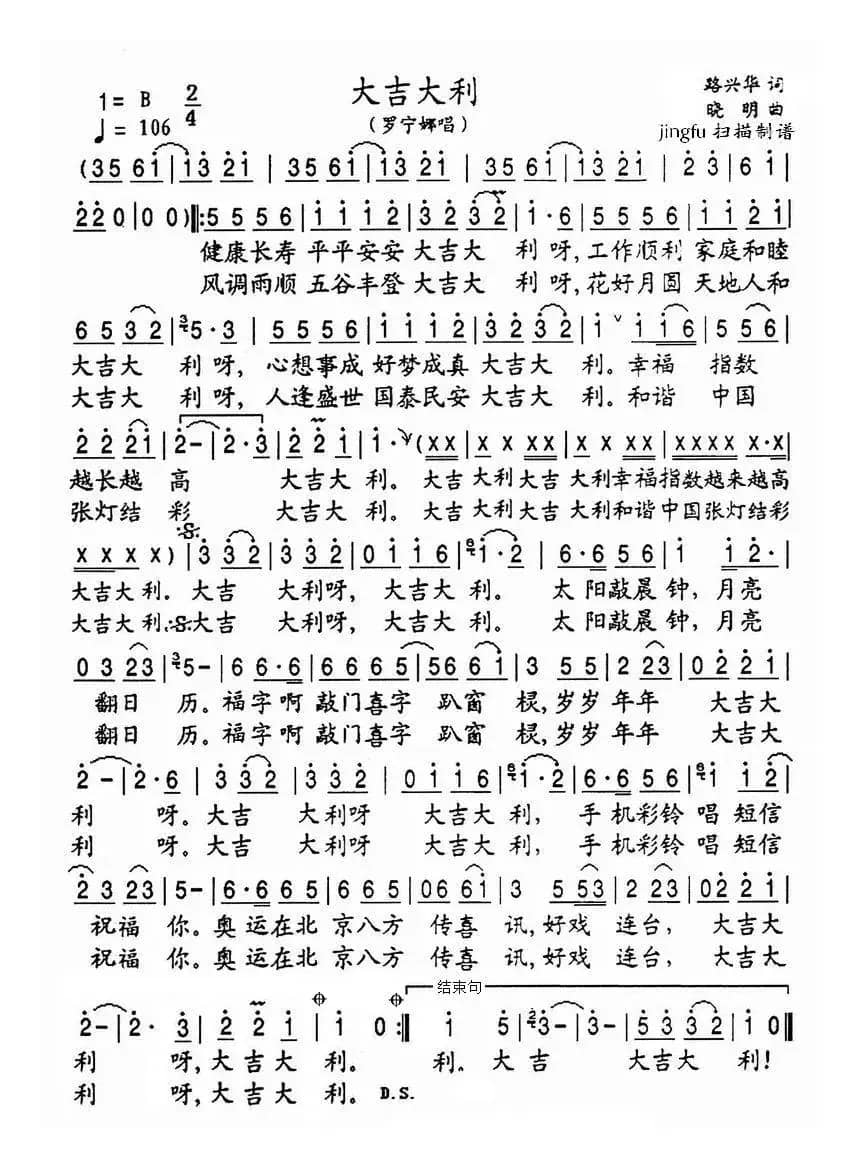 大吉大利
1= B 2/4
♩= 106
(罗宁娜唱)
路兴华 词
晓 明 曲
jingfu 扫描制谱
(35 61|13 21 |35 61|13 21 |35 61|13 21 |2 3|6 1|
220|0 0)‖:5556|1112|3232|1·6|5556|1121|
健康长寿 平平安安 大吉大 利 呀,工作顺利 家庭和睦
风调雨顺 五谷丰登 大吉大 利 呀,花好月圆 天地人和
6532|5·3|5556|1112|3232|1 116|5556|
大吉大 利 呀, 心想事成 好梦成真 大吉大 利。幸福 指数
大吉大 利 呀, 人逢盛世 国泰民安 大吉大 利。和谐 中国
2221|2-|2·3|2 2 1|1·(xx|x x xx|x x xx|xxxx x·x|
越长越 高 大吉大 利。大吉 大利大吉 大利幸福指数越来越高
张灯结 彩 大吉大 利。大吉 大利大吉 大利和谐中国张灯结彩
x x x x)|3 32|3 32|0116|1·2|6·656|1 12·|
大吉大利. 大吉 大利呀, 大吉大 利。 太 阳敲晨 钟,月亮
大吉大利. 大吉 大利呀, 大吉大 利。 太 阳敲晨 钟,月亮
0323|5-|66·6|6665|5661|3 55|2 23|0221|
翻日 历。福字啊 敲门喜字 趴窗 棂,岁岁 年年 大吉大
翻日 历。福字啊 敲门喜字 趴窗 棂,岁岁 年年 大吉大
2-|2·6|3 32|3 32|0116|1·2|6·656|1 12·|
利 呀。大吉 大利呀 大吉大 利, 手 机彩铃 唱 短信
利 呀。大吉 大利呀 大吉大 利, 手 机彩铃 唱 短信
2323|5-|6·665|5652|0661|3 553|2 23|0221|
祝福 你。奥运在北 京八方 传喜 讯,好戏 连台, 大吉大
祝福 你。奥运在北 京八方 传喜 讯,好戏 连台, 大吉大
结束句
2-|2· 3|2 2 1|1 0:‖1 5|3-|3-|5332|1 0‖
利 呀,大吉大 利。 利。大吉 大吉大 利!
利 呀,大吉大 利。 D.S.